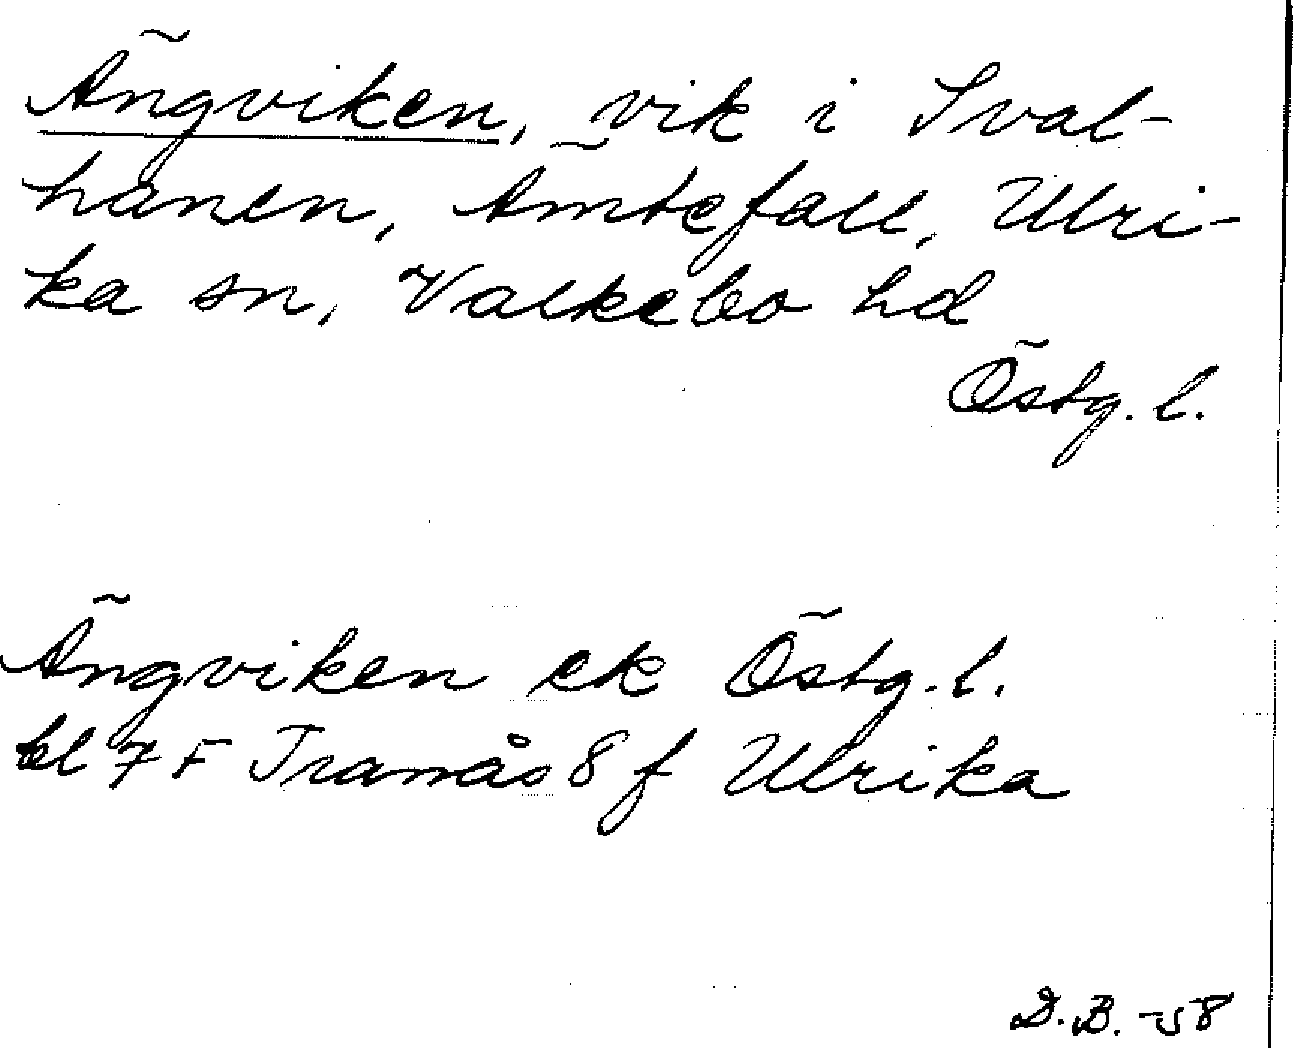 Ängviken, vik i Sval-
hanen, Ämtefall, Ulri-
ka sn, Valkebo hd
Östg. l.
Ängviken ek Östg. l.
bl 7 F Tranås 8 f Ulrika
D.B. -58